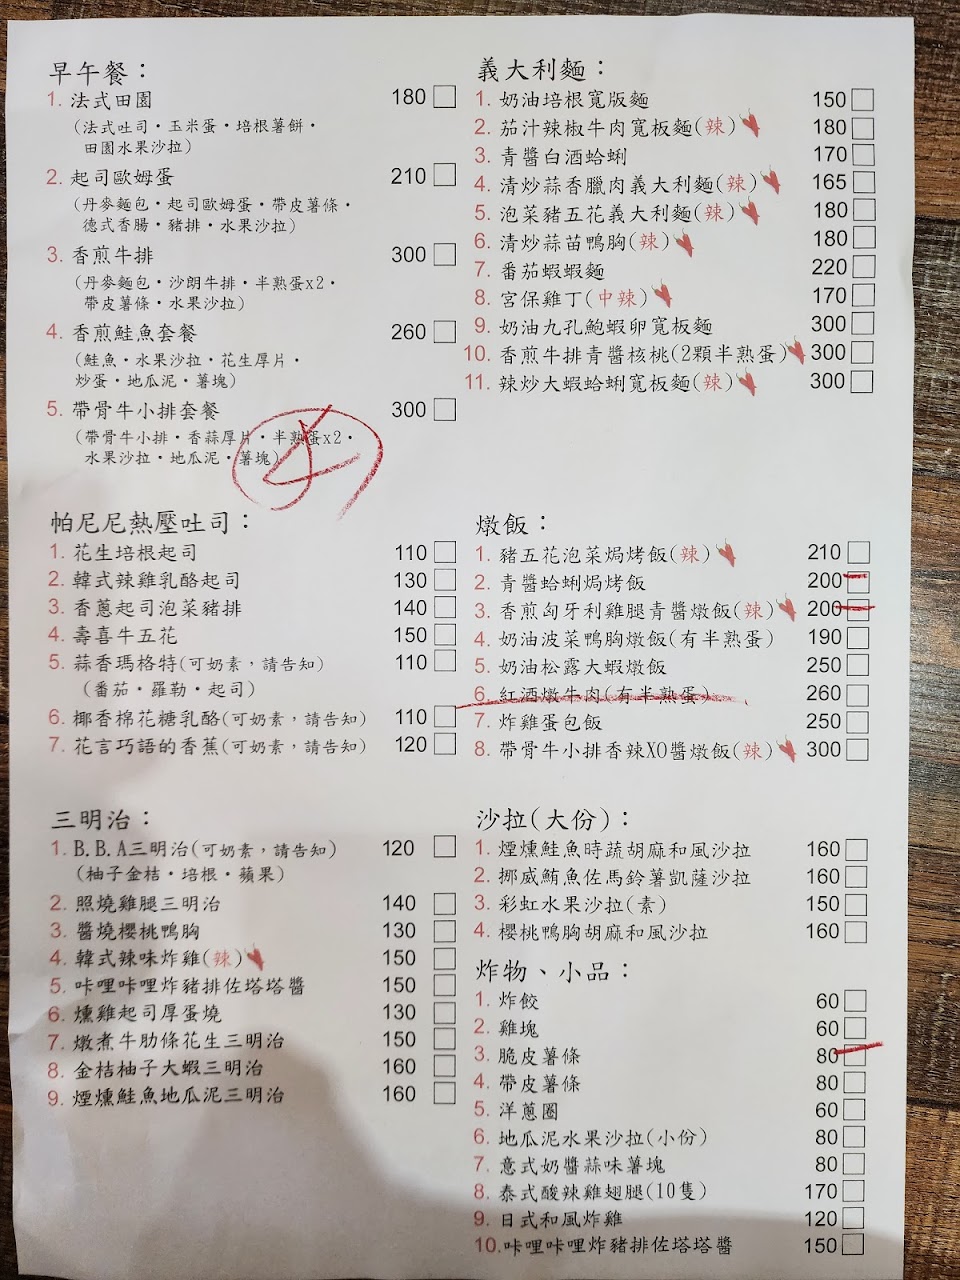 早午餐：
1. 法式田園 180
(法式吐司・玉米蛋・培根薯餅・
田園水果沙拉)
2. 起司歐姆蛋 210
(丹麥麵包・起司歐姆蛋・帶皮薯條・
德式香腸・豬排・水果沙拉)
3. 香煎牛排 300
(丹麥麵包・沙朗牛排・半熟蛋x2・
帶皮薯條・水果沙拉)
4. 香煎鮭魚套餐 260
(鮭魚・水果沙拉・花生厚片・
炒蛋・地瓜泥・薯塊)
5. 帶骨牛小排套餐 300
(帶骨牛小排・香蒜厚片・半熟蛋x2・
水果沙拉・地瓜泥・薯塊)
帕尼尼熱壓吐司：
1. 花生培根起司 110
2. 韓式辣雞乳酪起司 130
3. 香蔥起司泡菜豬排 140
4. 壽喜牛五花 150
5. 蒜香瑪格特(可奶素，請告知) 110
(番茄・羅勒・起司)
6. 椰香棉花糖乳酪(可奶素，請告知) 110
7. 花言巧語的香蕉(可奶素，請告知) 120
三明治：
1. B.B.A三明治(可奶素，請告知) 120
(柚子金桔・培根・蘋果)
2. 照燒雞腿三明治 140
3. 醬燒櫻桃鴨胸 130
4. 韓式辣味炸雞(辣) 150
5. 咔哩咔哩炸豬排佐塔塔醬 150
6. 燻雞起司厚蛋燒 130
7. 燉煮牛肋條花生三明治 150
8. 金桔柚子大蝦三明治 160
9. 煙燻鮭魚地瓜泥三明治 160
義大利麵：
1. 奶油培根寬版麵 150
2. 茄汁辣椒牛肉寬板麵(辣) 180
3. 青醬白酒蛤蜊 170
4. 清炒蒜香臘肉義大利麵(辣) 165
5. 泡菜豬五花義大利麵(辣) 180
6. 清炒蒜苗鴨胸(辣) 180
7. 番茄蝦蝦麵 220
8. 宮保雞丁(中辣) 170
9. 奶油九孔鮑蝦卵寬板麵 300
10. 香煎牛排青醬核桃(2顆半熟蛋) 300
11. 辣炒大蝦蛤蜊寬板麵(辣) 300
燉飯：
1. 豬五花泡菜焗烤飯(辣) 210
2. 青醬蛤蜊焗烤飯 200
3. 香煎匈牙利雞腿青醬燉飯(辣) 200
4. 奶油波菜鴨胸燉飯(有半熟蛋) 190
5. 奶油松露大蝦燉飯 250
6. 紅酒燉牛肉(有半熟蛋) 260
7. 炸雞蛋包飯 250
8. 帶骨牛小排香辣XO醬燉飯(辣) 300
沙拉(大份)：
1. 煙燻鮭魚時蔬胡麻和風沙拉 160
2. 挪威鮪魚佐馬鈴薯凱薩沙拉 160
3. 彩虹水果沙拉(素) 150
4. 櫻桃鴨胸胡麻和風沙拉 160
炸物、小品：
1. 炸餃 60
2. 雞塊 60
3. 脆皮薯條 80
4. 帶皮薯條 80
5. 洋蔥圈 60
6. 地瓜泥水果沙拉(小份) 80
7. 意式奶醬蒜味薯塊 80
8. 泰式酸辣雞翅腿(10隻) 170
9. 日式和風炸雞 120
10.咔哩咔哩炸豬排佐塔塔醬 150